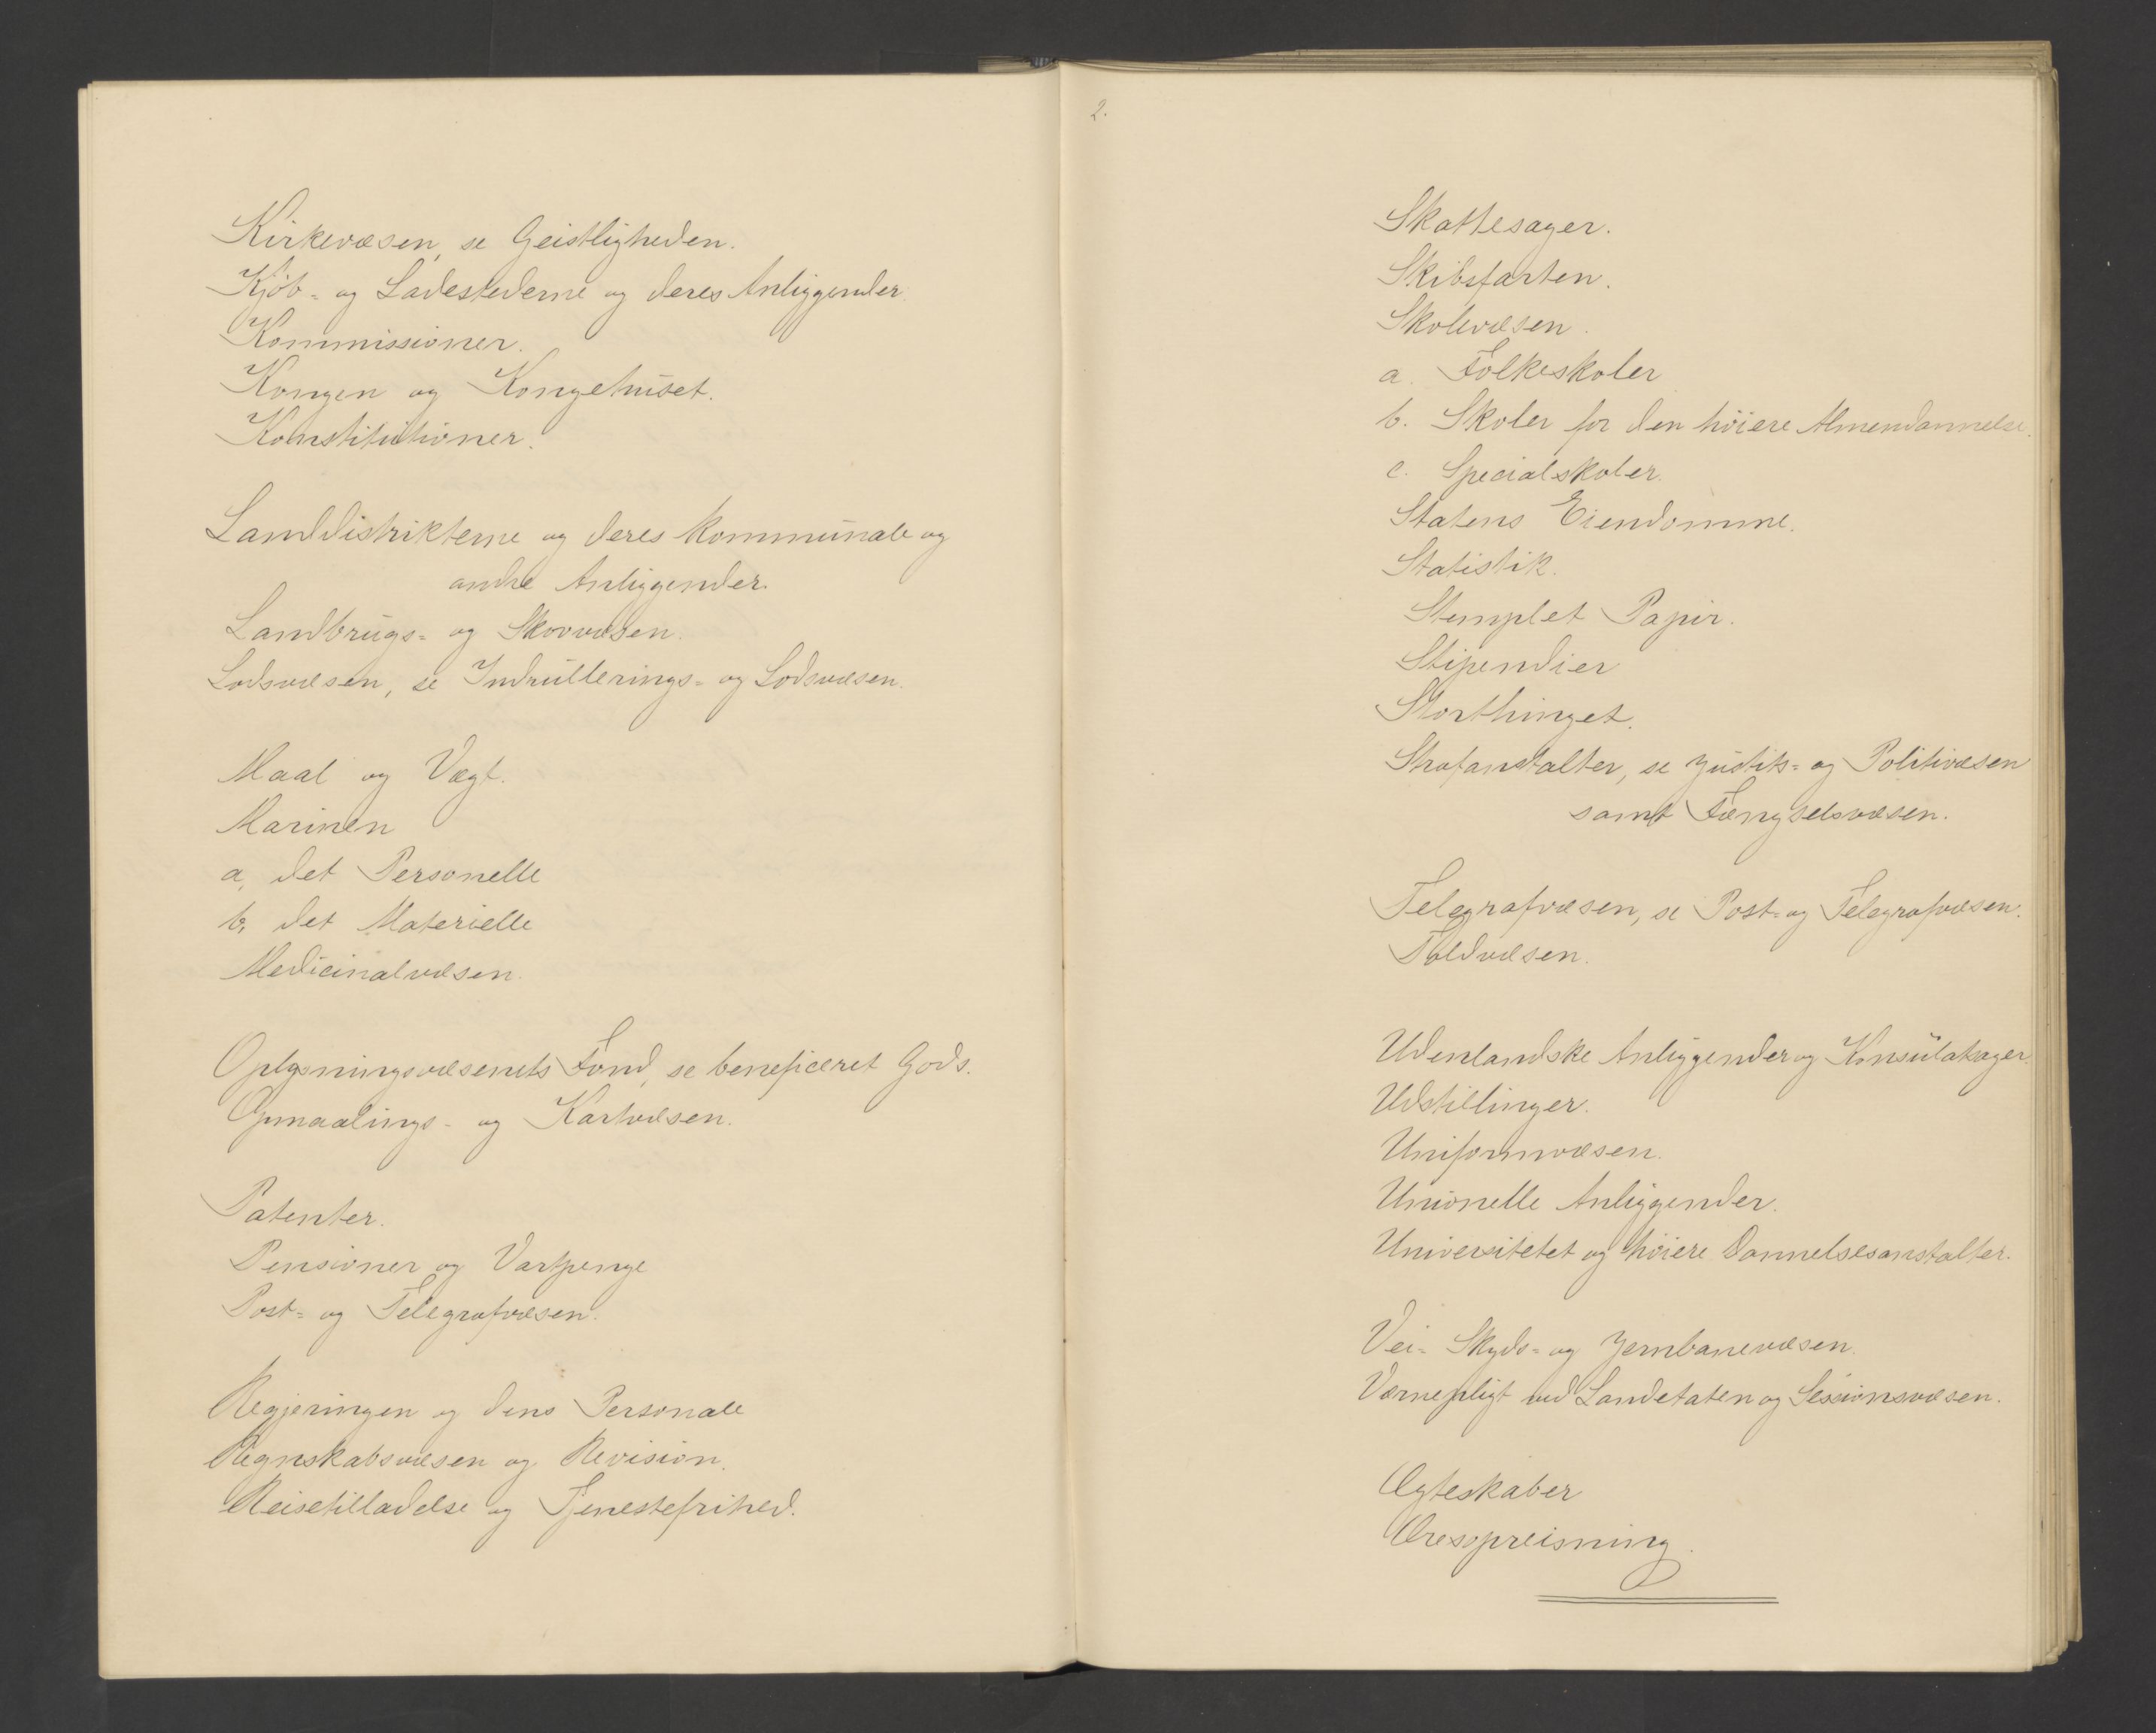 Kirkevæsen, se Geistligheden.
Kjöb- og Ladestederne og deres Anliggender.
Kommissioner.
Kongen og Kongehuset.
Konstitutioner.
Landdistrikterne og deres kommunale og
andre Anliggender.
Landbrugs- og Skovvæsen.
Lodsvæsen, se Indrullerings- og Lodsvæsen.
Maal og Vægt.
Marinen
a, det Personelle
b, det Materielle
Medicinalvæsen.
Oplysningsvæsenets Fond, se beneficeret Gods.
Opmaalings- og Kartvæsen.
Patenter.
Pensioner og Vartpenge
Post- og Telegrafvæsen.
Regjeringen og dens Personale
Regnskabsvæsen og Revision.
Reisetilladelse og Tjenestefrihed.
2.
Skattesager.
Skibsfarten.
Skolevæsen.
a. Folkeskoler
b. Skoler for den höiere Almendannelse.
c. Specialskoler.
Statens Eiendomme.
Statistik.
Stemplet Papir.
Stipendier
Storthinget.
Strafanstalter, se Justits- og Politivæsen
samt Fængselsvæsen.
Telegrafvæsen, se Post- og Telegrafvæsen.
Toldvæsen.
Udenlandske Anliggender og Konsulatsager.
Udstillinger.
Uniformvæsen.
Unionelle Anliggender.
Universitetet og höiere Dannelsesanstalter.
Vei- Skyds- og Jernbanevæsen.
Værnepligt ved Landetaten og Sessionsvæsen.
Ægteskaber
Æresopreisning.